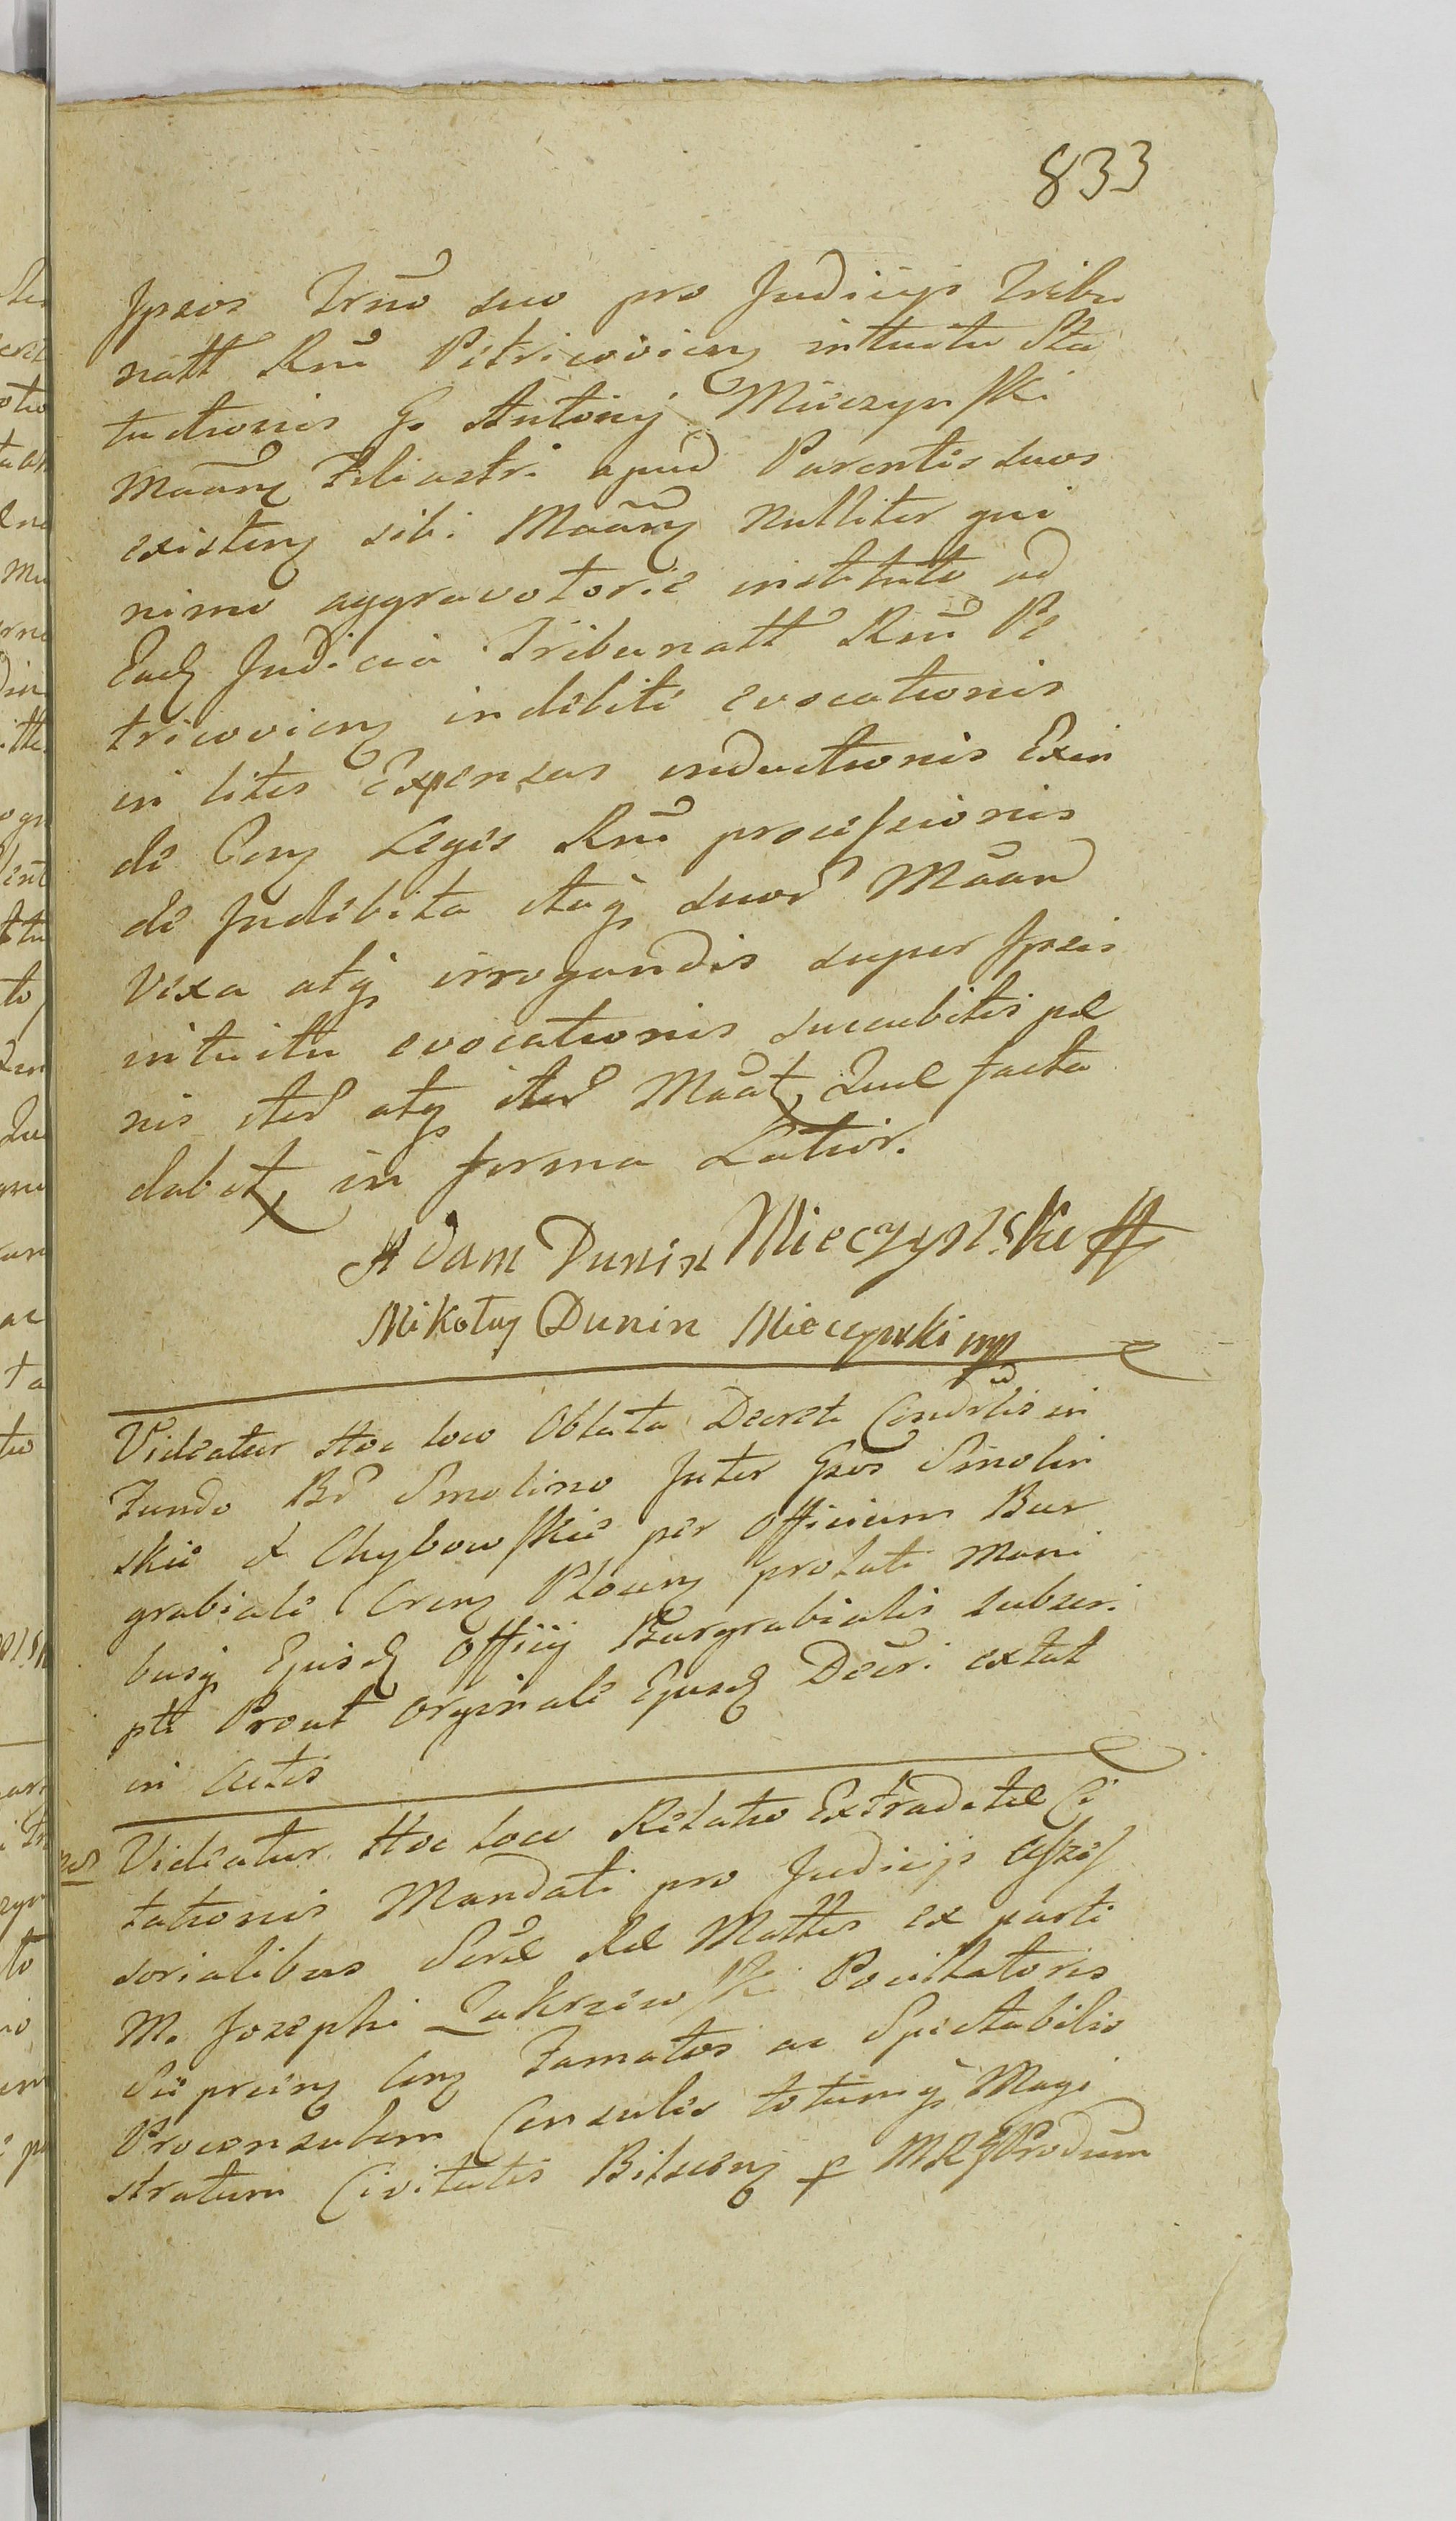 833
Ipsos Trno suo pro Judicijs Tribu
natt Rni Petricovien intuitu Sta
tutionis G. Antonij Mieczynski
Maan Filiastri apud Parentes suos
existen sibi Maan nulliter qui
nimo aggravatorie instituto ad
Ead Judicia Tribunatt Rni Pe
tricovien indebite evocationis
in lites Expensas inductionis Exin
de Cen Legis Rni processionis
de Indebita itaq suor Maan
vexa atq irrogandis super Ipsis
intuitu evocationis succubitis poe
nis iter atq iter Maat, Quae facta
dabit, in forma Latior.
Adam Dunin Mieczynski
Mikołay Dunin Mieczynski mp
Videatur Hoc loco Oblata Decreti Condlis in
Fundo Br Smolino Inter Gsos Smolin
skie & Chybowskie per Officium Bur
grabiale Cren Plocen prolati Mani
busq Ejusd Officij Burgrabialis subscri
pti Prout Orginale Ejusd Decri extat
in Actis
Videatur Hoc loco Relatio Extraditae Ci
tationis Mandati pro Judicijs Asses
sorialibus Sorae Rae Mattis ex parte
M. Josephi Zakrzewski Pocillatoris
Sieprcen Con Famatos ac Spectabiles
Proconsulem Consules totumq Magi
stratum Civitatis Bilscen p